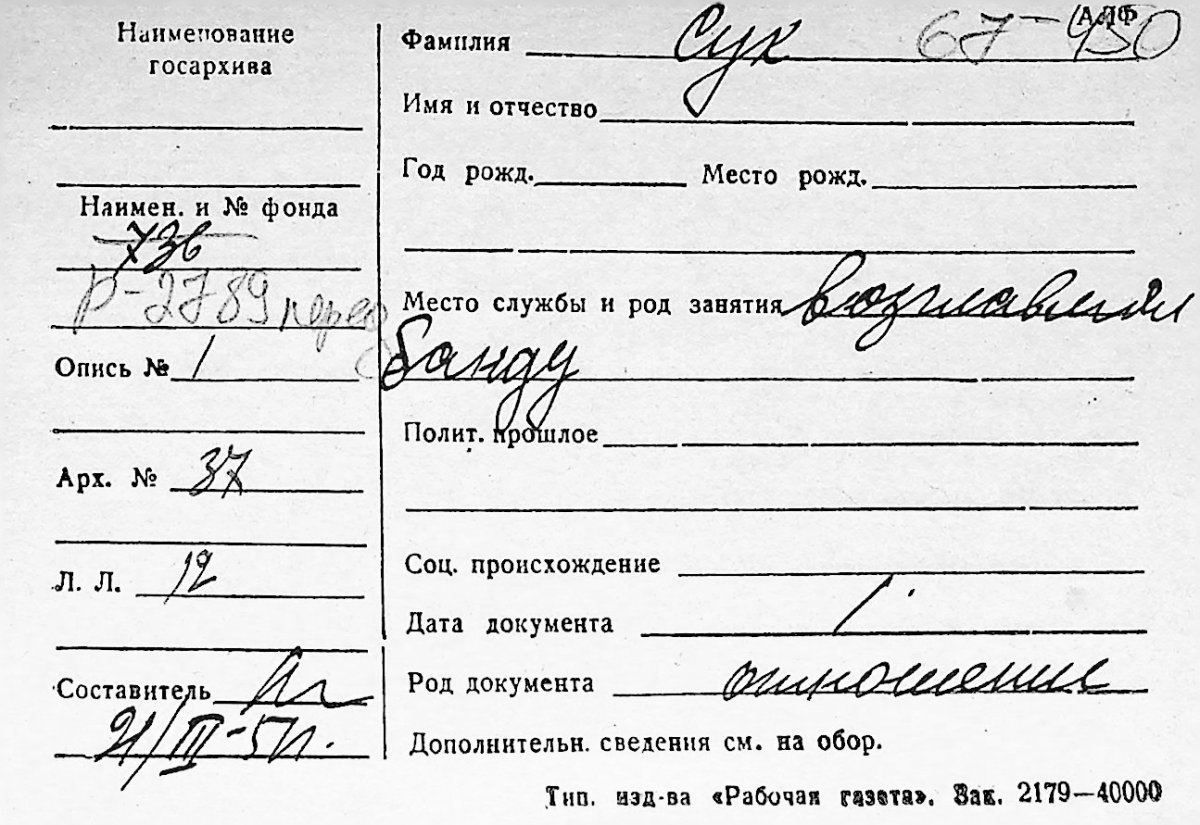 Наименование
госархива
Наимен. и № фонда
736
Р-2789 перед
Опись № 1
Арх. № 37
Л. Л. 12
Составитель
21/III-51г.
АДФ
Фамилия Сук 67-450
Имя и отчество
Год рожд. Место рожд.
Место службы и род занятия возглавлял
банду
Полит. прошлое
Соц. происхождение
Дата документа
Род документа отношение
Дополнительн. сведения см. на обор.
Тип. изд-ва «Рабочая газета». Зак. 2179—40000